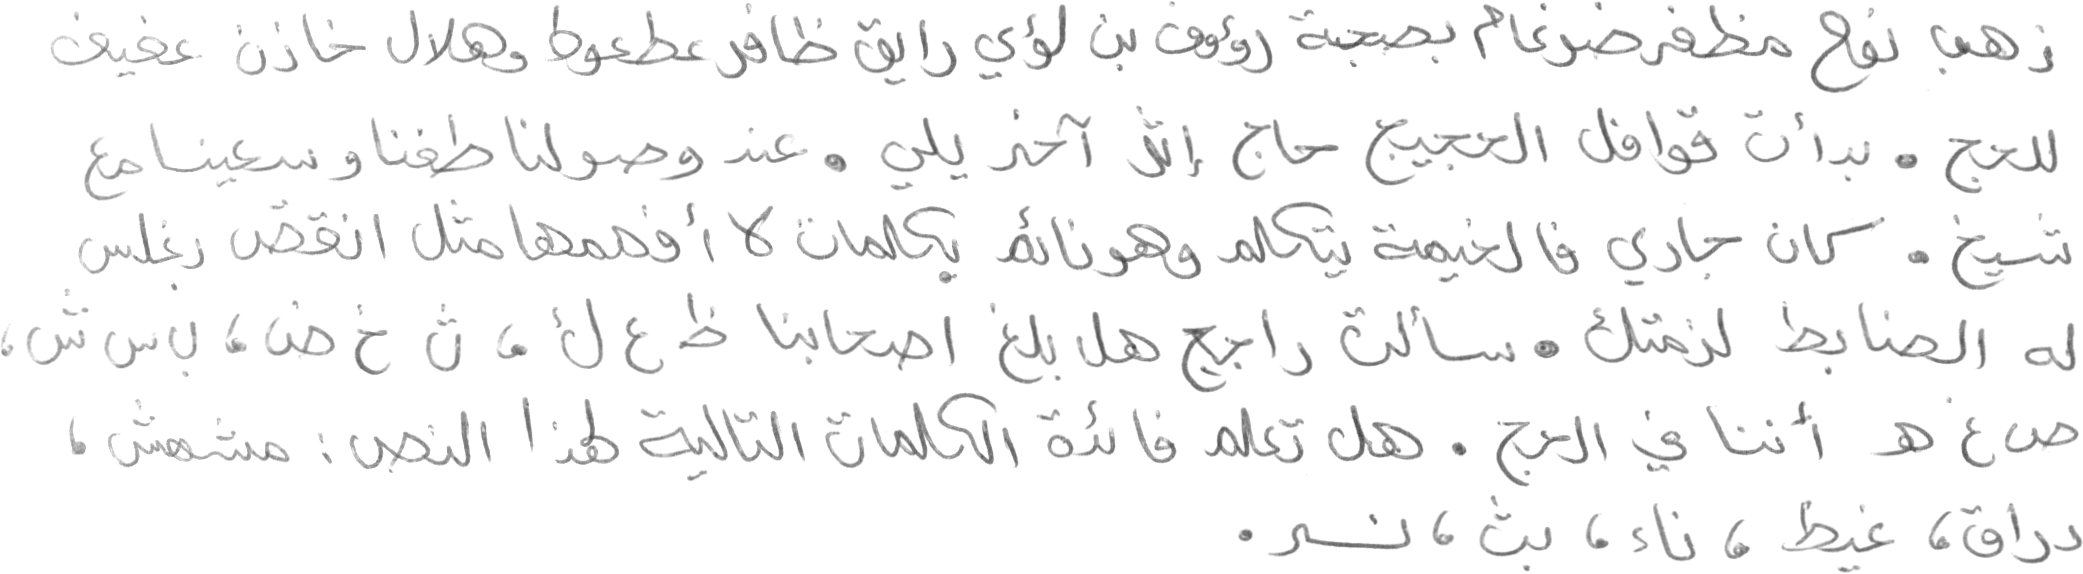 ذهب نوح مظفر ضرغام بصحبة رؤوف بن لؤي رايق ظافر عطعوط وهلال خازن عفيف
للحج . بدأت قوافل الحجيج حاج إثر آخر يلي . عند وصولنا طفنا وسعينا مع
شيخ . كان جاري فالخيمة يتكلم وهو نائم بكلمات لا أفهمها مثل انقض بغلس
له الضابط لزمتك . سألت راجح هل بلغ اصحابنا ظ ع ك ، ث خ ض ، ب س ش ،
ص غ هـ أننا في الحج . هل تعلم فائدة الكلمات التالية لهذا النص : مشمش ،
دراق ، غيظ ، ناء ، بث ، نسر .